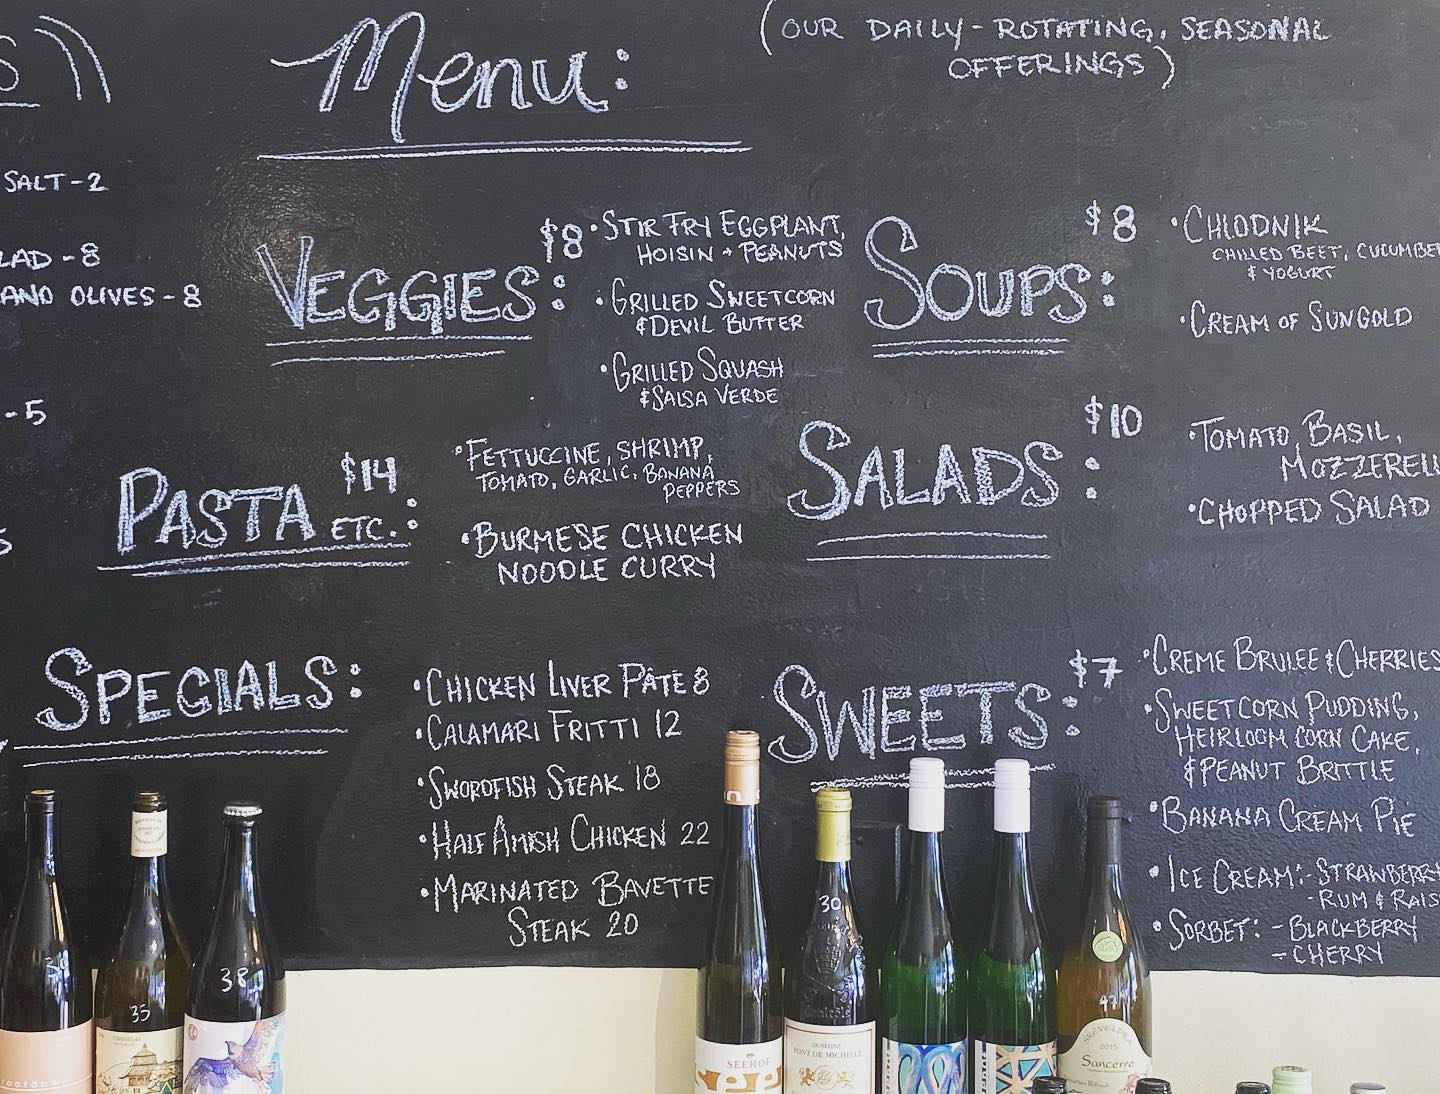 Menu:
(OUR DAILY-ROTATING, SEASONAL
OFFERINGS)
SALT-2
-8
OLIVES-8
-5
VEGGIES: $8
•STIR FRY EGGPLANT,
HOISIN + PEANUTS
•GRILLED SWEETCORN
&DEVIL BUTTER
•GRILLED SQUASH
&SALSA VERDE
SOUPS: $8
•CHLODNIK
CHILLED BEET, CUCUMBE
& YOGURT
•CREAM OF SUNGOLD
PASTA ETC.: $14
•FETTUCCINE, SHRIMP,
TOMATO, GARLIC, BANANA
PEPPERS
•BURMESE CHICKEN
NOODLE CURRY
SALADS: $10
•TOMATO, BASIL,
MOZZEREL
•CHOPPED SALAD
SPECIALS:
•CHICKEN LIVER PÂTE 8
•CALAMARI FRITTI 12
•SWORDFISH STEAK 18
•HALF AMISH CHICKEN 22
•MARINATED BAVETTE
STEAK 20
SWEETS: $7
•CREME BRULEE & CHERRIES
•SWEETCORN PUDDING,
HEIRLOOM CORN CAKE,
& PEANUT BRITTLE
•BANANA CREAM PIE
•ICE CREAM:-STRAWBERRY
-RUM & RAIS
•SORBET: -BLACKBERRY
-CHERRY
35
38
30
SEEHOF
DOMAINE
FONT DE MICHELLE
2015
Sancerre